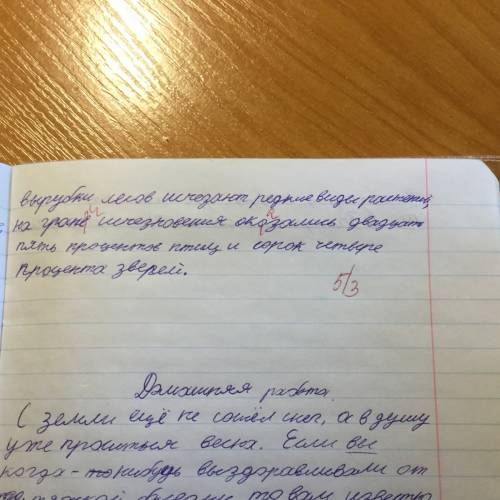 вырубки лесов исчезают редкие виды растений,
на грани исчезновения оказались двадцать
пять процентов птиц и сорок четыре
процента зверей.
5/3
Домашняя работа.
С земли ещё не сошёл снег, а в душу
уже проситься весна. Если вы
когда-нибудь выздоравливали от
тяжкой болезни, то вам известны